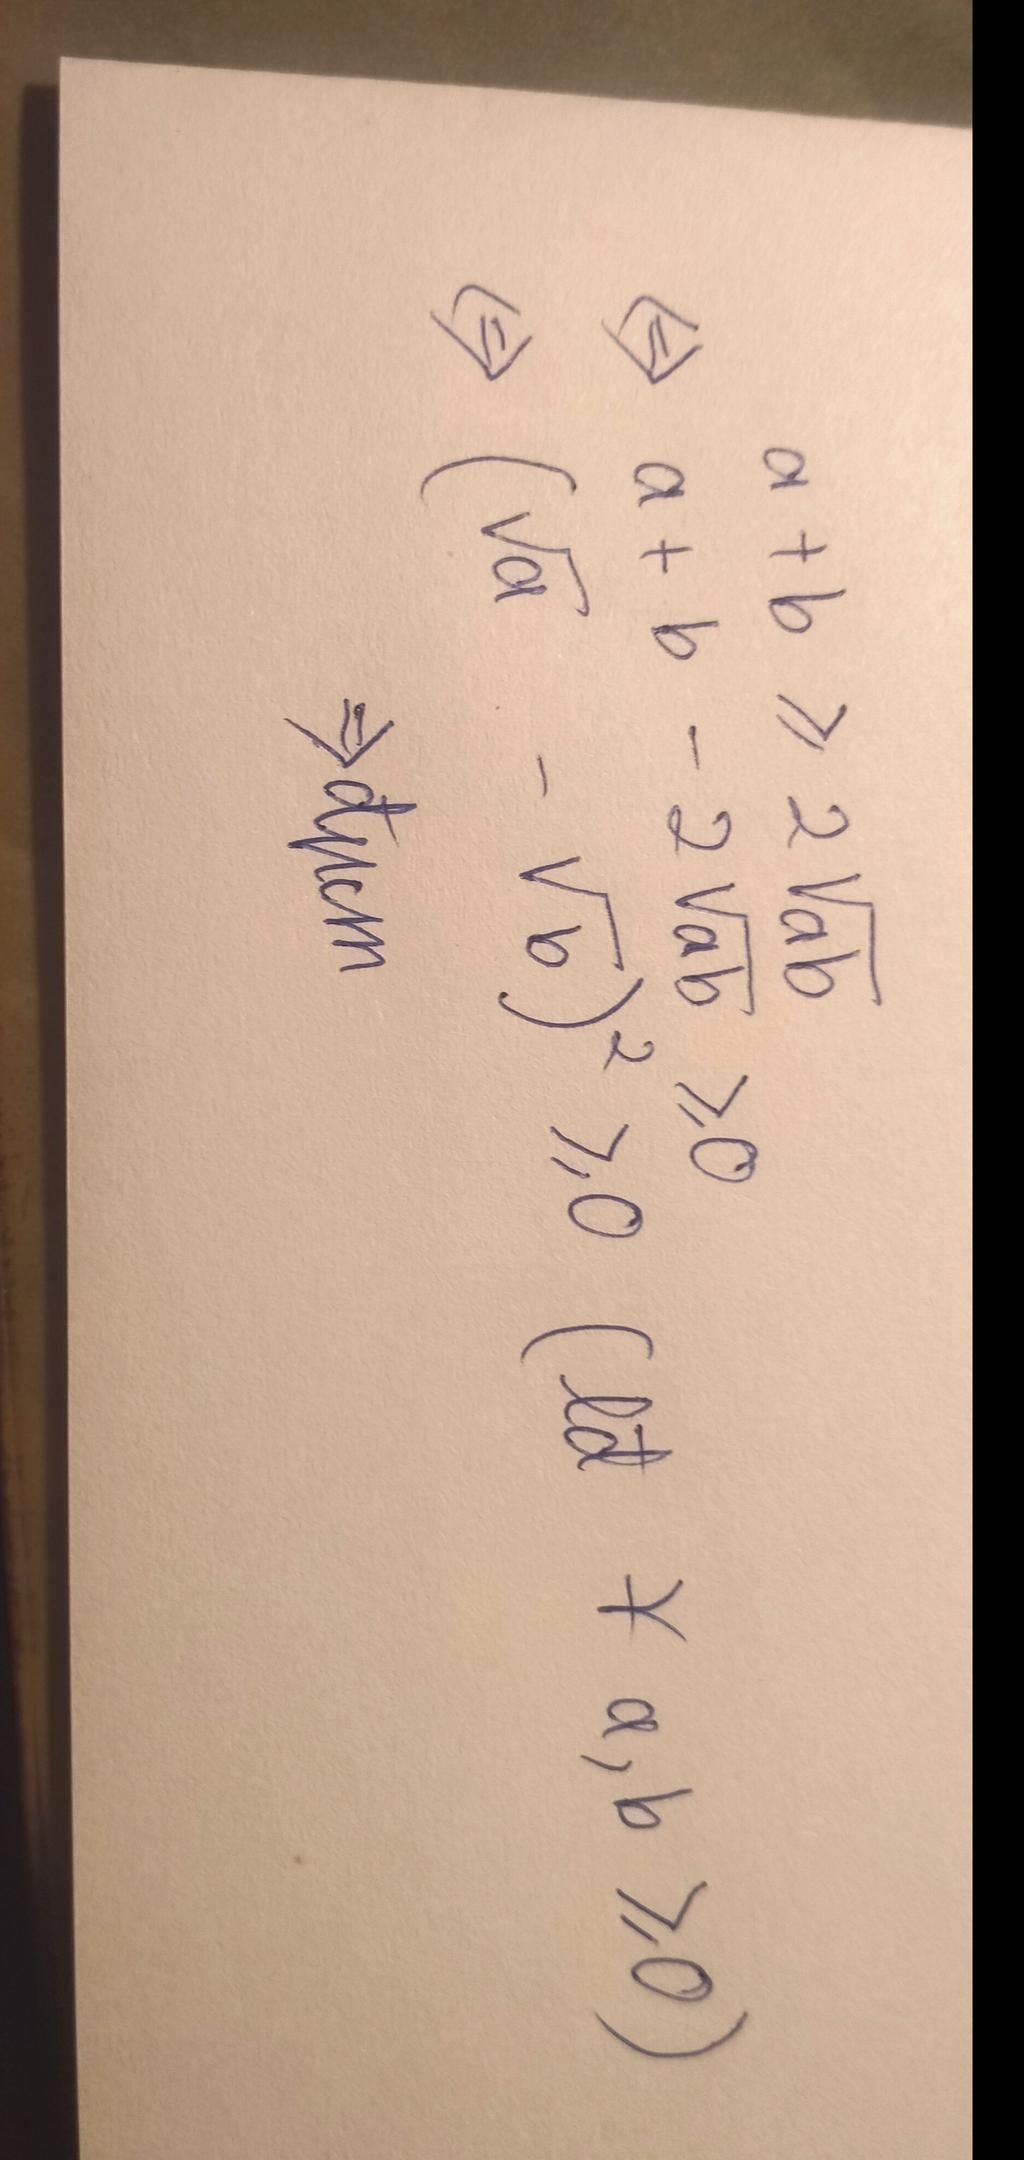 a + b ≥ 2√ab
⇔ a + b - 2√ab ≥ 0
⇔ (√a - √b)² ≥ 0 (lđ ∀ a, b ≥ 0)
⇒ đpcm